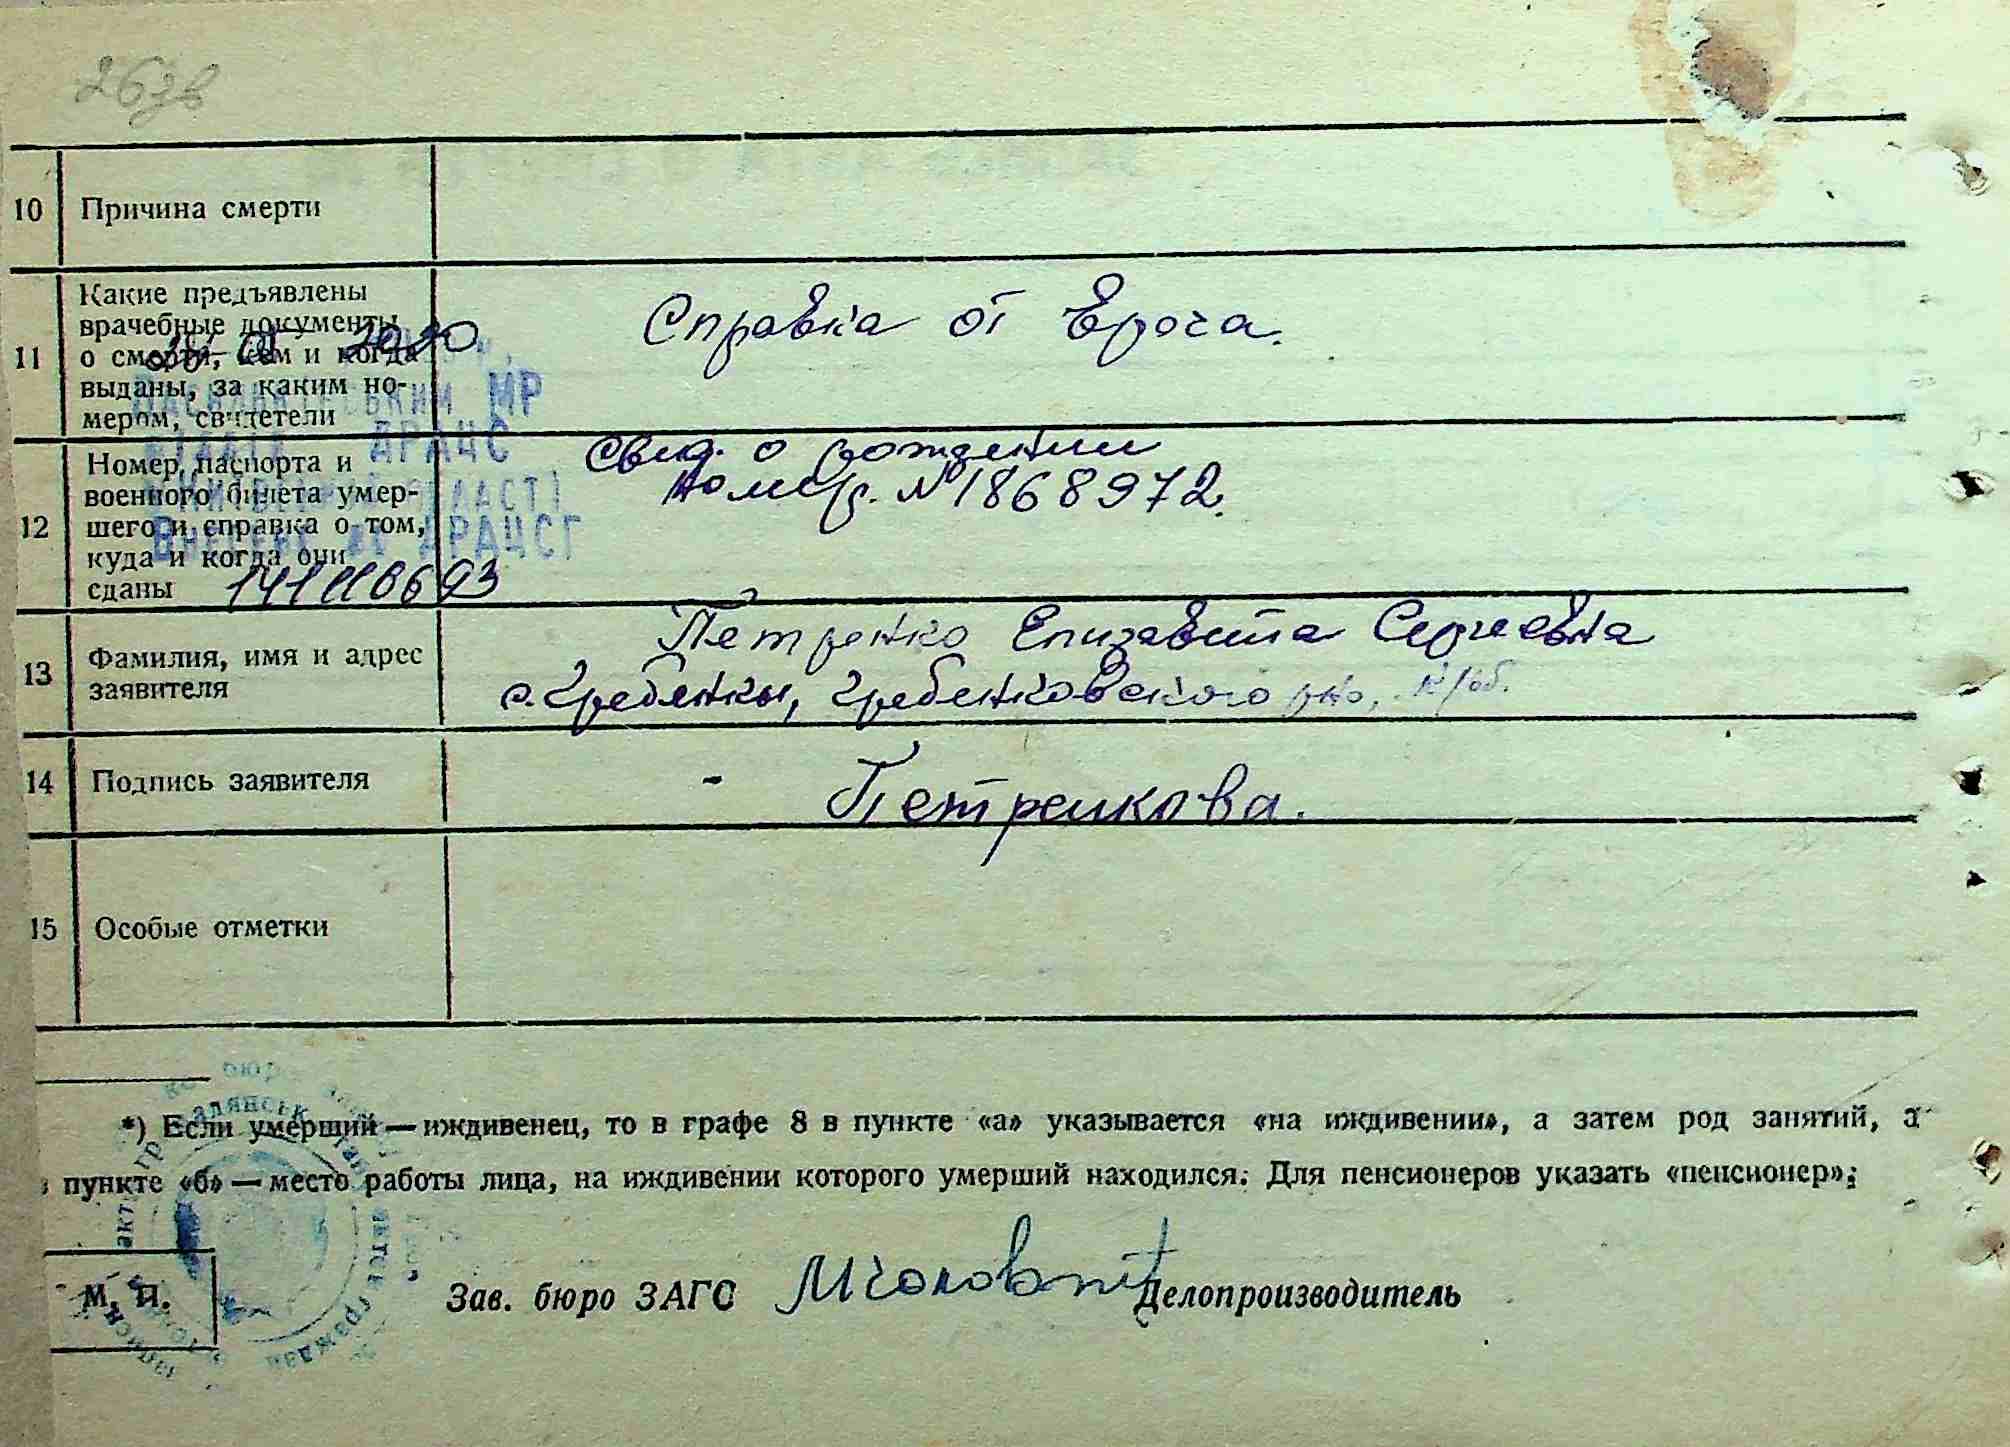 10 Причина смерти
11 Какие предъявлены
врачебные документы
о смерти, кем и когда
выданы, за каким но-
мером, свидетели
Справка от Врача.
2020
МР
ДРАЦС
ДРАЦСГ
12 Номер паспорта и
военного билета умер-
шего и справка о том,
куда и когда они
сданы
Свид. о рождении
номер. № 1868972.
13 Фамилия, имя и адрес
заявителя
Петренко Елизавета Сергеевна
с. Гребенки, Гребенковского
14 Подпись заявителя
15 Особые отметки
*) Если умерший — иждивенец, то в графе 8 в пункте «а» указывается «на иждивении», а затем род занятий, а
в пункте «б» — место работы лица, на иждивении которого умерший находился. Для пенсионеров указать «пенсионер»;
М. П.
Зав. бюро ЗАГС Делопроизводитель